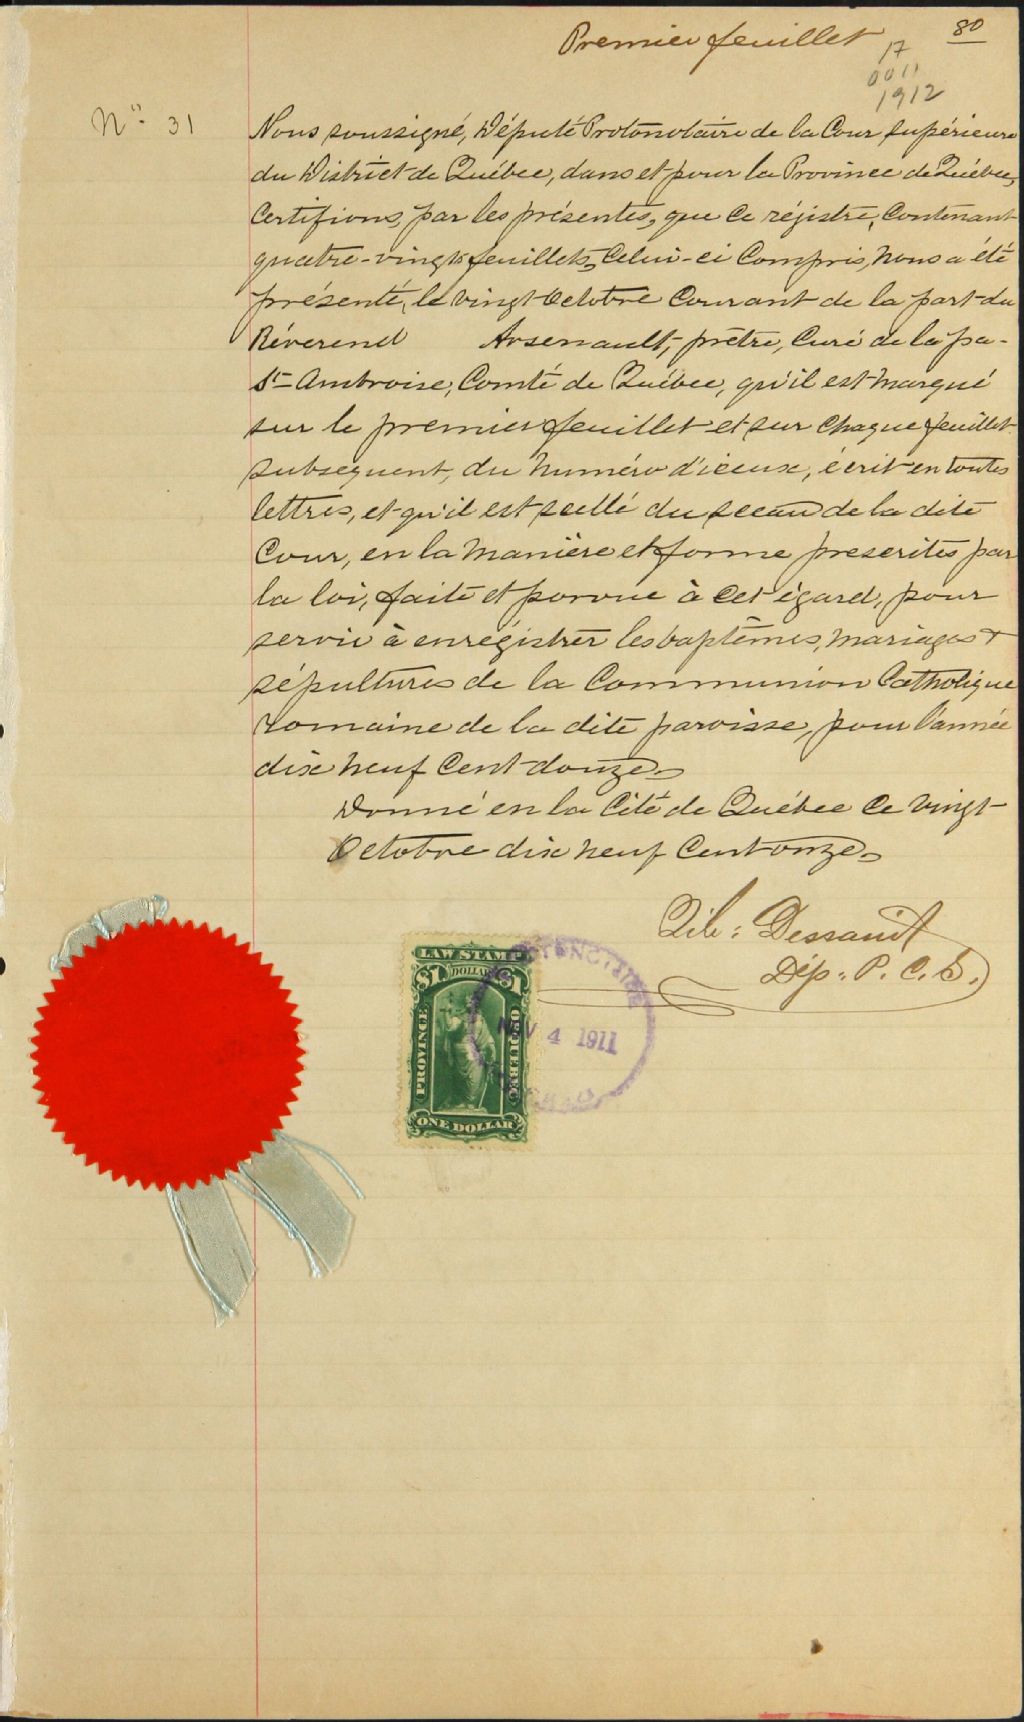 Premier feuillet 80
17
0011
1912
No. 31
Nous soussigné, Député Protonotaire de la Cour supérieure
du District de Québec, dans et pour la Province de Québec,
Certifions, par les présentes, que ce régistre, Contenant
quatre-vingts feuillets, Celui-ci Compris, nous a été
présenté, le vingt Octobre Courant de la part du
Révérend Arsenault, prêtre, Curé de la pa-
St-Ambroise, Comté de Québec, qu'il est marqué
sur le premier feuillet et sur chaque feuillet
subséquent, du numéro d'iceux, écrit en toutes
lettres, et qu'il est scellé du sceau de la dite
Cour, en la manière et forme prescrites par
la loi, faite et pourvue à cet égard, pour
servir à enrégistrer les baptêmes, mariages &
sépultures de la Communion Catholique
romaine de la dite paroisse, pour l'année
dix neuf Cent douze.
Donné en la Cité de Québec ce vingt
Octobre dix neuf Cent onze.
Dessault
Dép. P. C. S.
LAW STAMP
$1 DOLLAR $1
PROVINCE OF QUEBEC
ONE DOLLAR
NOV 4 1911